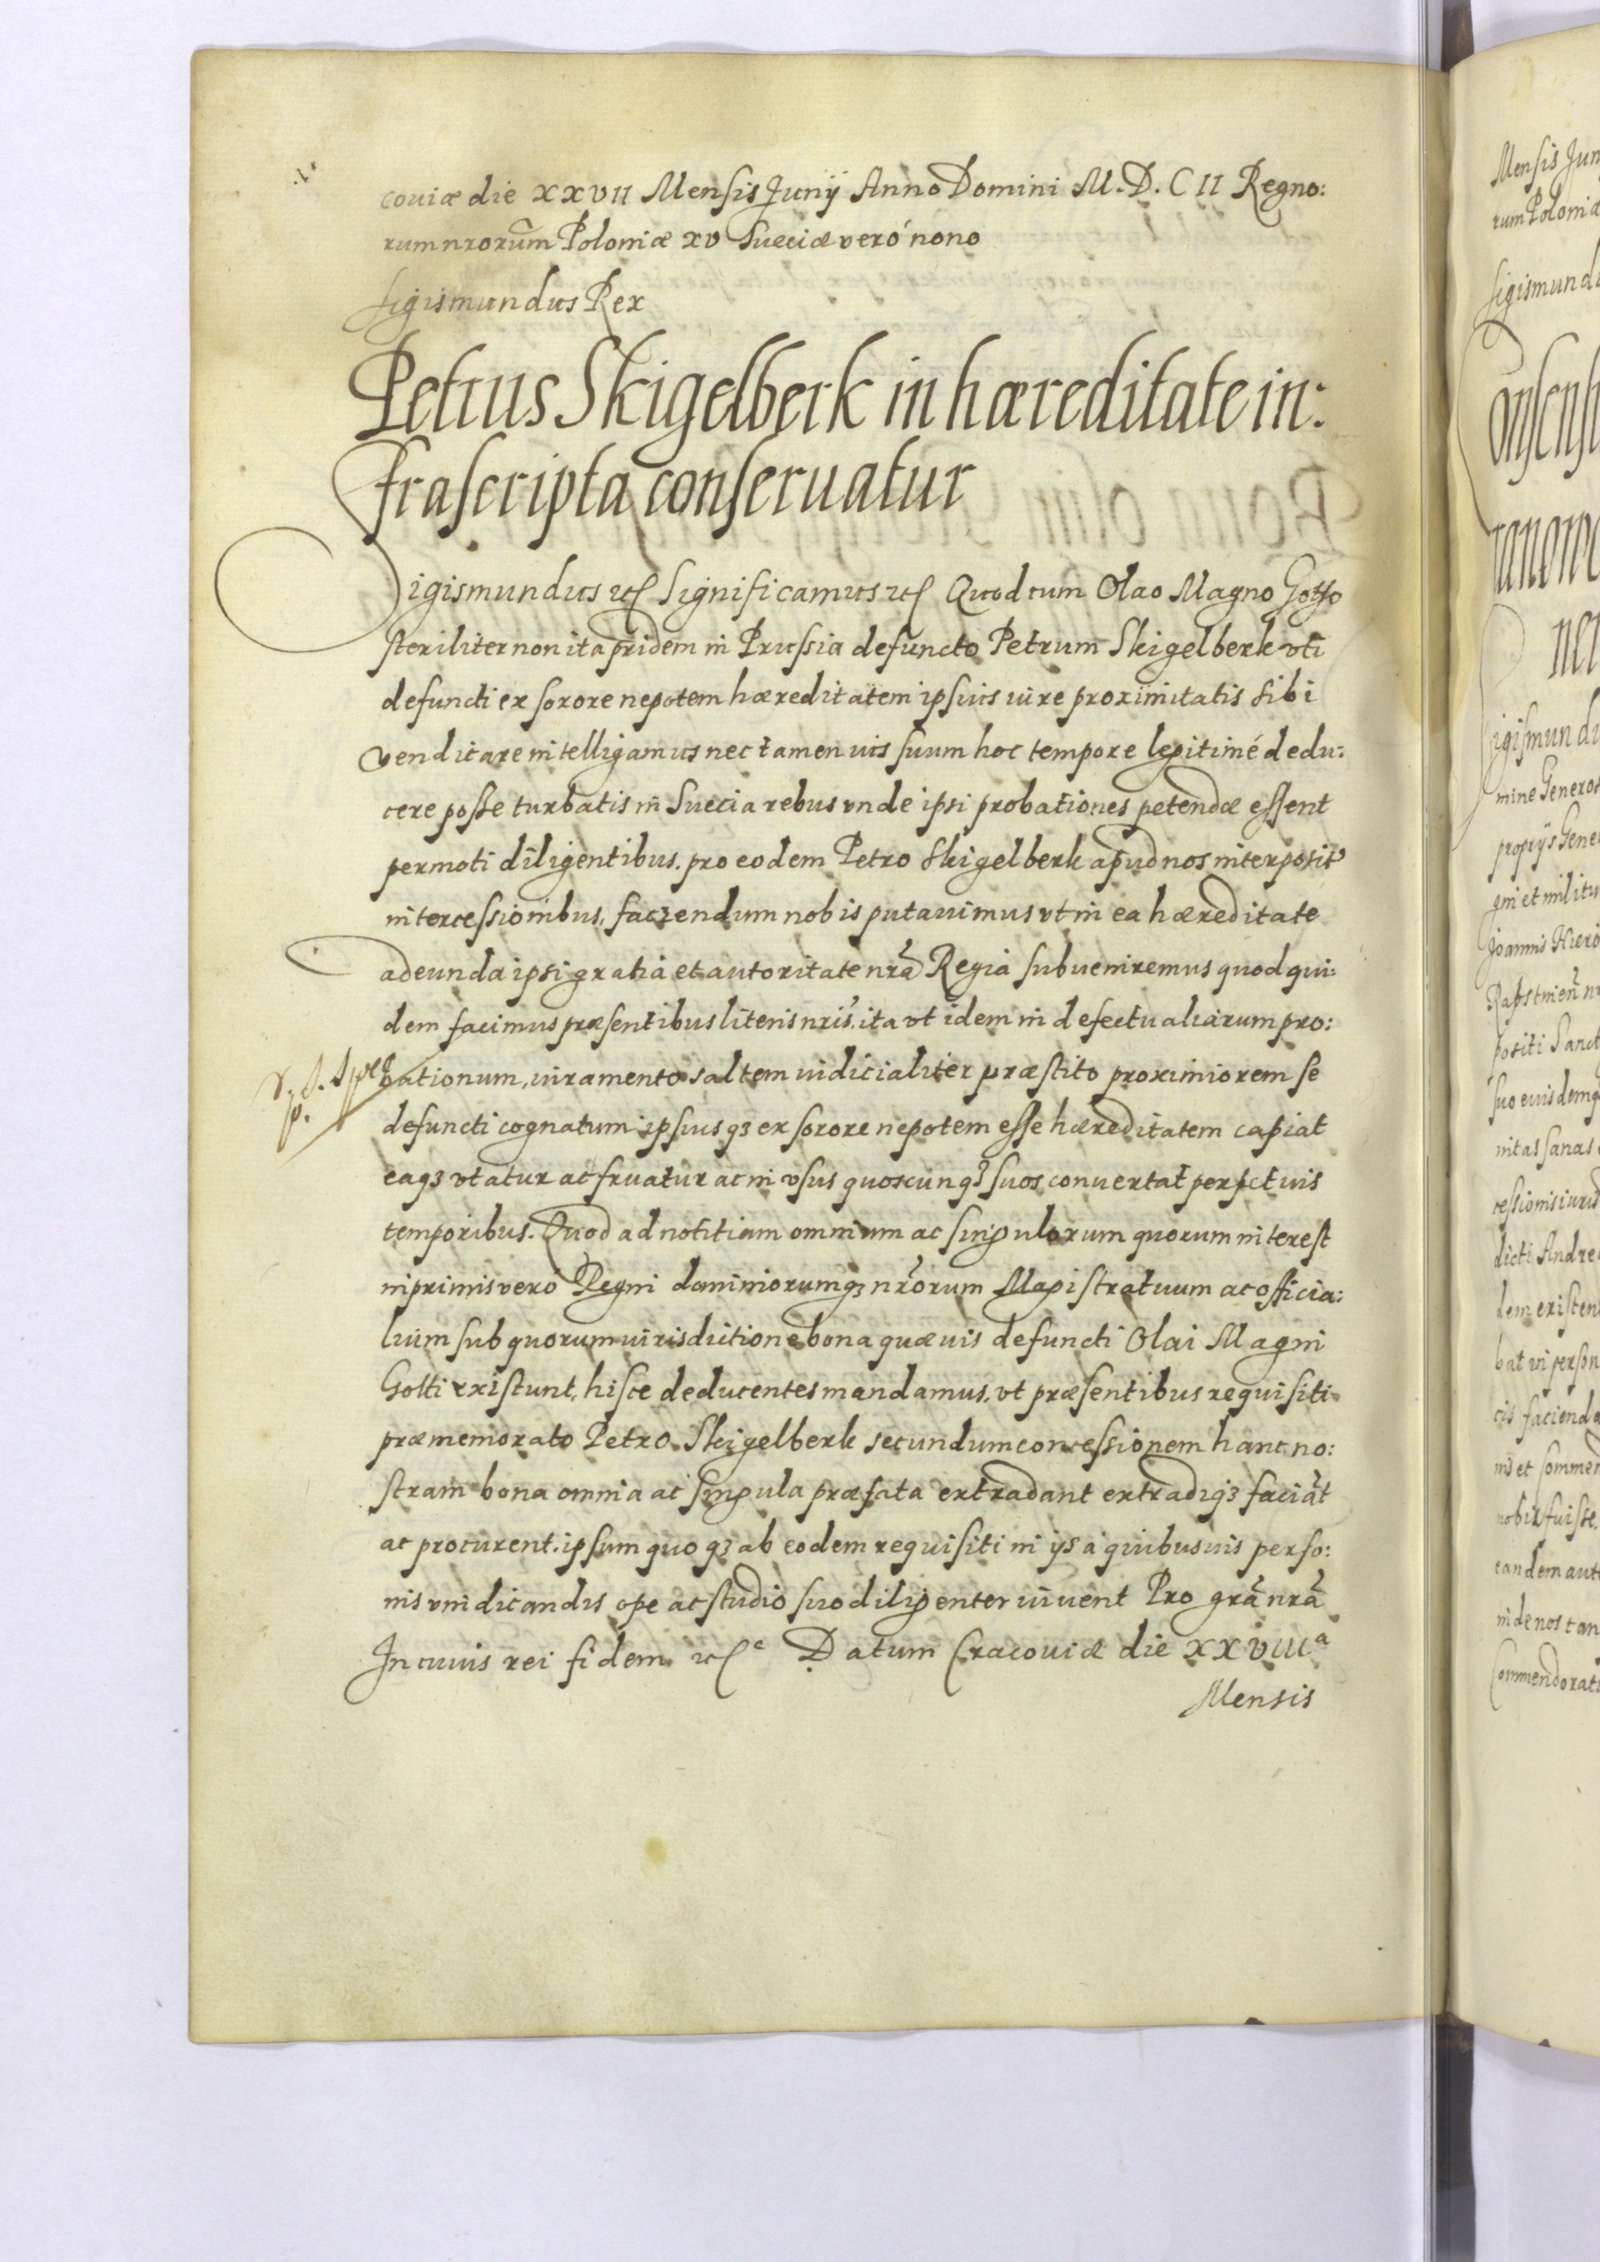 coviæ die XXVII Mensis Junij Anno Domini M.D.CII Regno:
rum nrorum Poloniæ XV Sueciæ veró nono
Sigismundus Rex
Petrus Skigelberk in hæreditate in:
frascripta conservatur
Sigismundus etc Significamus etc Quod cum Olao Magno Gotto
steriliter non ita pridem in Prussia defuncto Petrum Skigelberk vti
defuncti ex sorore nepotem hæreditatem ipsius iure proximitatis sibi
vendicare intelligamus nec tamen ius suum hoc tempore legitimé dedu:
cere posse turbatis in Suecia rebus vnde ipsi probationes petendæ essent
permoti diligentibus pro eodem Petro Skigelberk apud nos interposit⁹
intercessionibus, faciendum nobis putavimus vt in ea hæreditate
adeunda ipsi gratia et autoritate nrã Regia subveniremus quod qui:
dem facimus præsentibus literis nris, ita vt idem in defectu aliarum pro:
bationum, iuramento saltem iudicialiter præstito proximiorem se
defuncti cognatum ipsiusq3 ex sorore nepotem esse hæreditatem capiat
eaq3 vtatur ac fruatur ac in vsus quoscunq3 suos convertat perpetuis
temporibus. Quod ad notitiam omnium ac singulorum quorum interest
inprimis vero Regni dominiorumq3 nrorum Magistratuum ac officia:
lium sub quorum iurisdictione bona quævis defuncti Olai Magni
Gotti existunt, hisce deducentes mandamus, vt præsentibus requisiti
præmemorato Petro Skigelberk secundum concessionem hanc no:
stram bona omnia ac singula præfata extradant extradiq3 faciãt
ac procurent, ipsum quoq3 ab eodem requisiti in ijs à quibusvis perso:
nis vindicandis ope ac studio suo diligenter iuvent Pro grã nrã
In cuius rei fidem etc Datum Cracoviæ die XXVIIIª
Mensis
Mensis Jun
rum Poloniæ
Sigismundu
onsensu
nen
Sigismundu
mine Generos
proprijs Gene
gni et militu
Joannis Hiero
positi Sanct
suo eiusdemq
nitas sanas
cessionis iuris
dicti Andre
dem existen
bat in person
cis faciend
nobis fuisse
eandem aut
inde nos tan
Commendorat